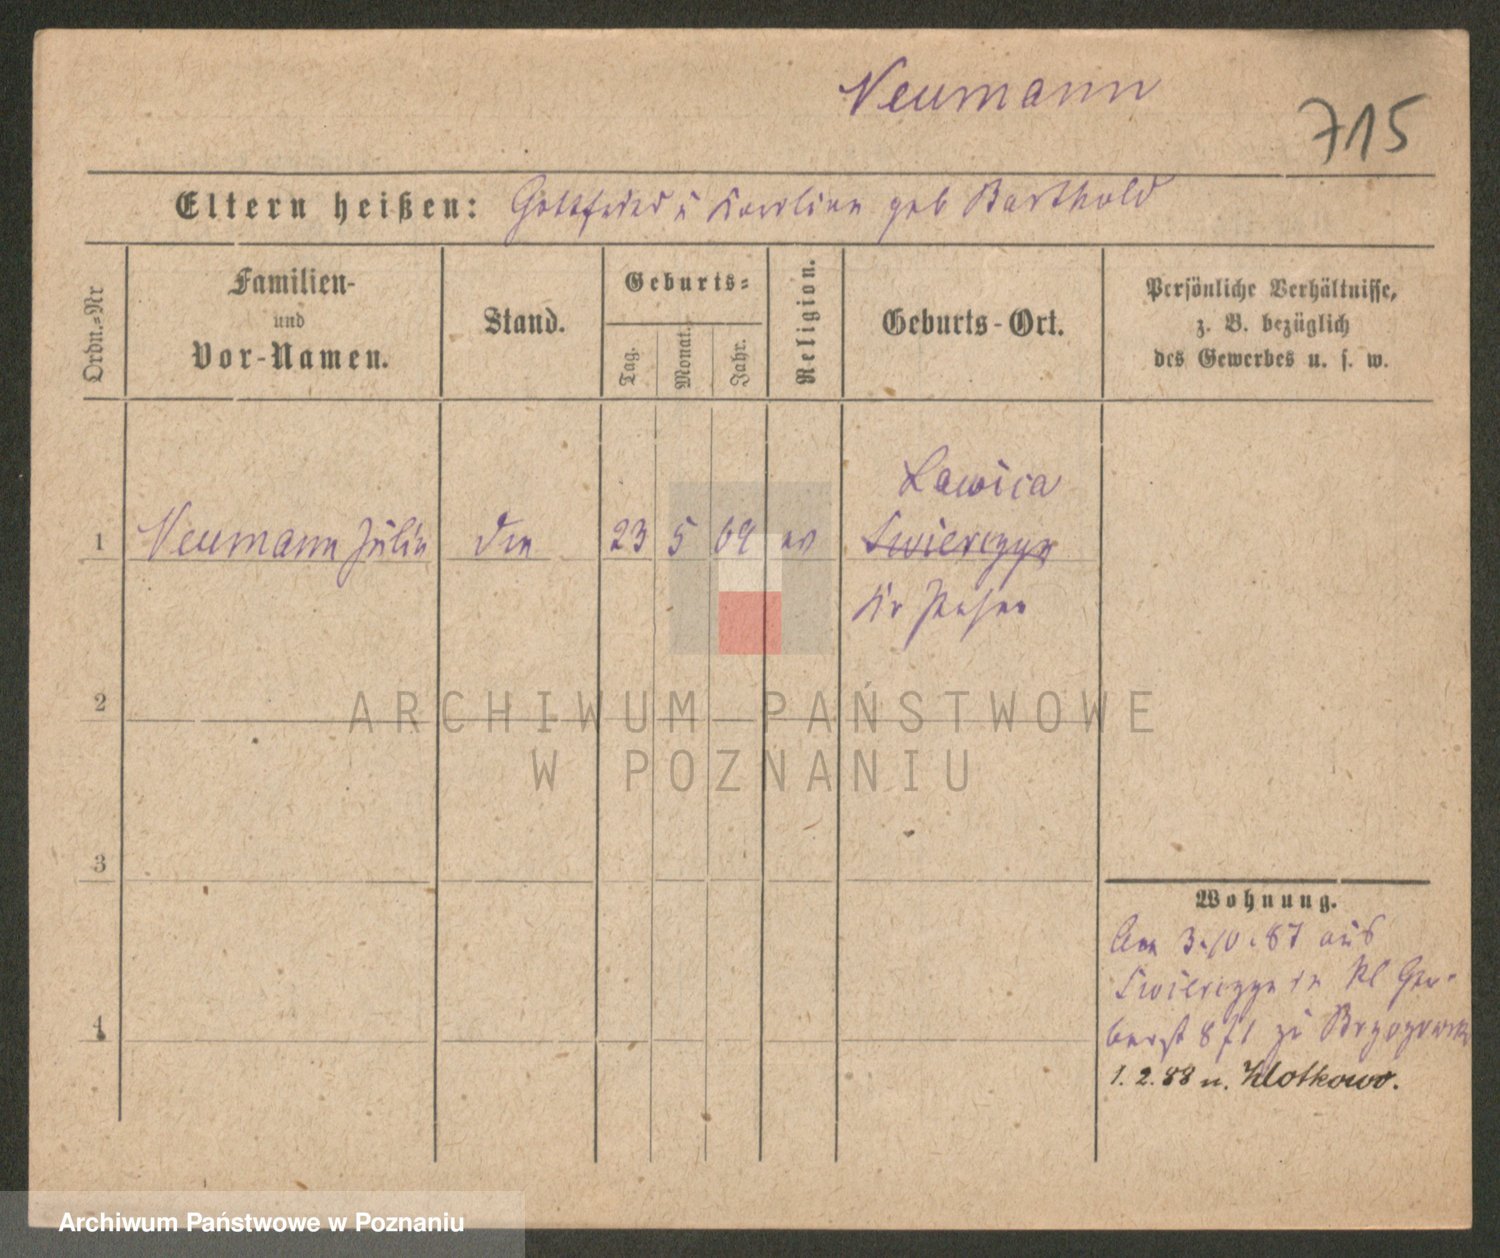 Neumann
715
Eltern heißen: Gottfried u Karoline geb Barthold
Ordn.-Nr
Familien-
und
Vor-Namen.
Stand.
Geburts-
Tag.
Monat.
Jahr.
Religion.
Geburts-Ort.
Persönliche Verhältnisse,
z. B. bezüglich
des Gewerbes u. s. w.
Lawica
1 Neumann Julie 23 5 69 ev Swierczyn
Kr Posen
2
3
4
Wohnung.
Am 3.10.87 aus
in Kl Ger-
berst 8 zu
1. 2. 88 n. Klotkowo.
ARCHIWUM PAŃSTWOWE
W POZNANIU
Archiwum Państwowe w Poznaniu